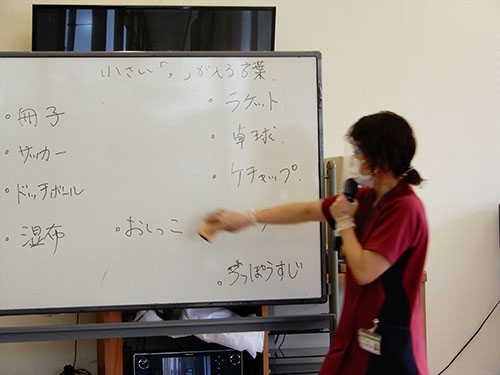 小さい「っ」が入る言葉
・ラケット
・卓球
・ケチャップ
・冊子
・サッカー
・ドッチボール
・湿布
・おしっこ